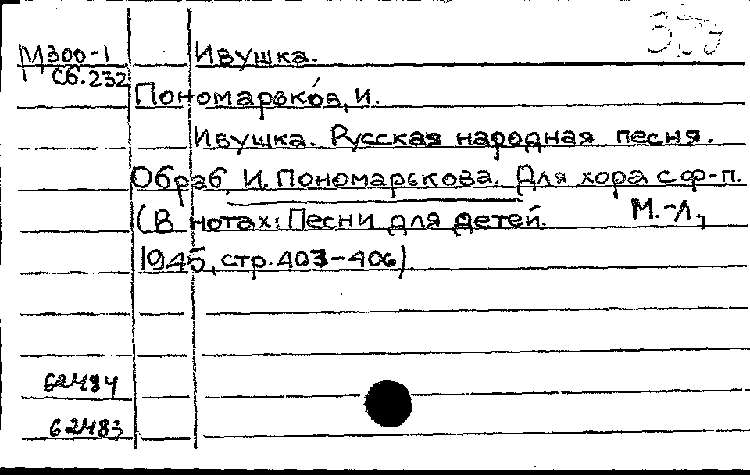 М300-1 Ивушка.
Сб.232
Пономарькóв, И.
Ивушка. Русская народная песня.
Обраб. И. Пономарькова. Для хора с ф-п.
(В нотах: Песни для детей. М.-Л.,
1945, стр. 403-406).
62484
62483